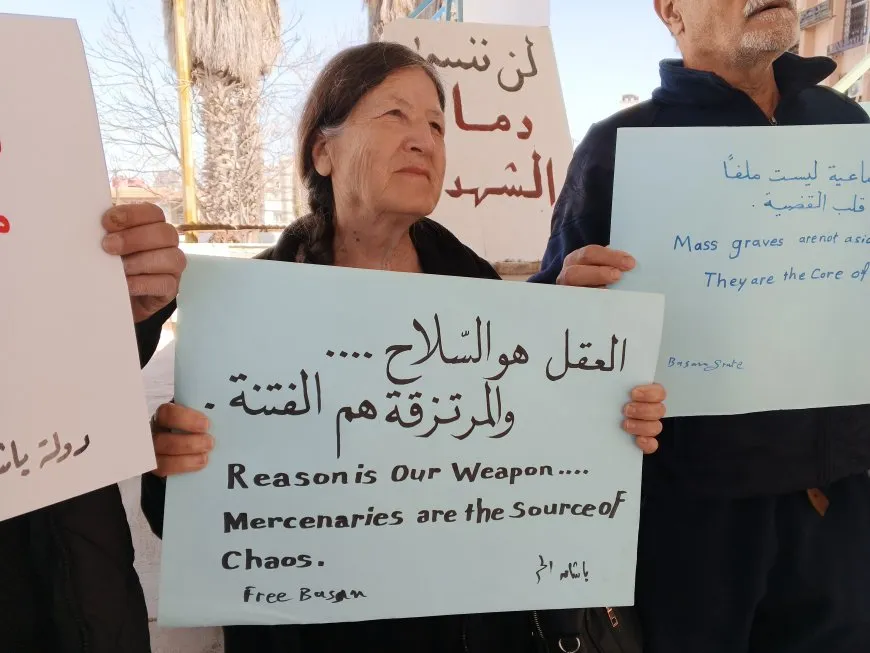 لن ننسى
دماء
الشهد
دولة باش
العقل هو السّلاح ....
والمرتزقة هم الفتنة .
Reason is Our Weapon ....
Mercenaries are the Source of
Chaos.
Free Basan
باشان الحر
ليست ملفاً
قلب القضية .
Mass graves are not a
They are the Core of
Basan State